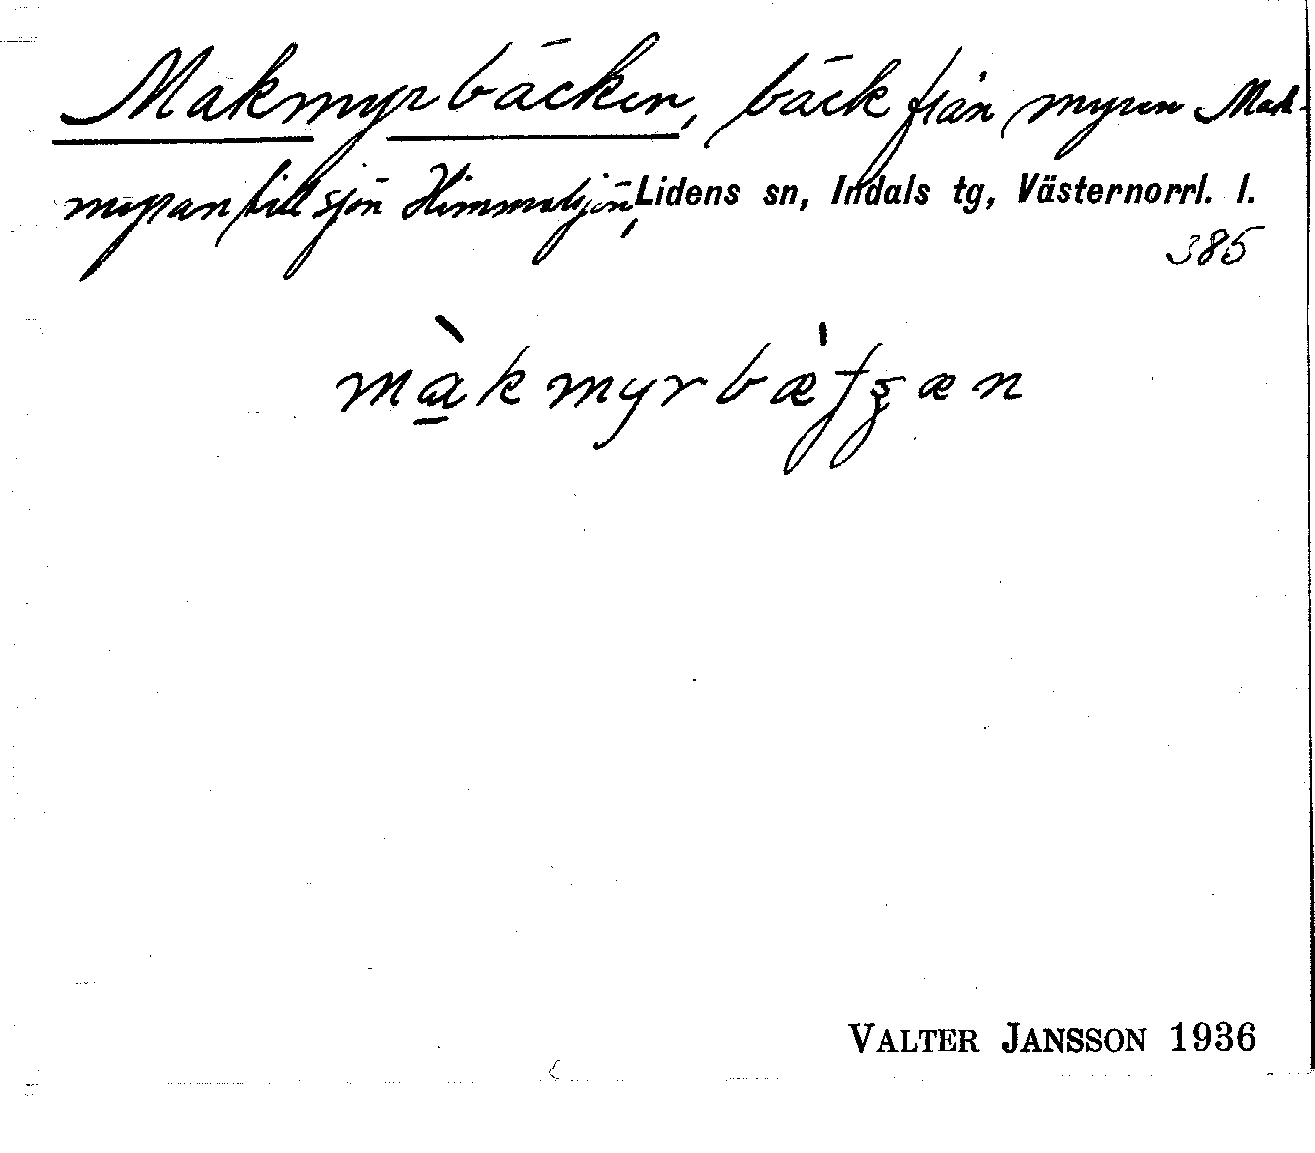 Makmyrbäcken, bäck från myren Mak-
myran till sjön Himmelsjön, Lidens sn, Indals tg, Västernorrl. l.
385
VALTER JANSSON 1936